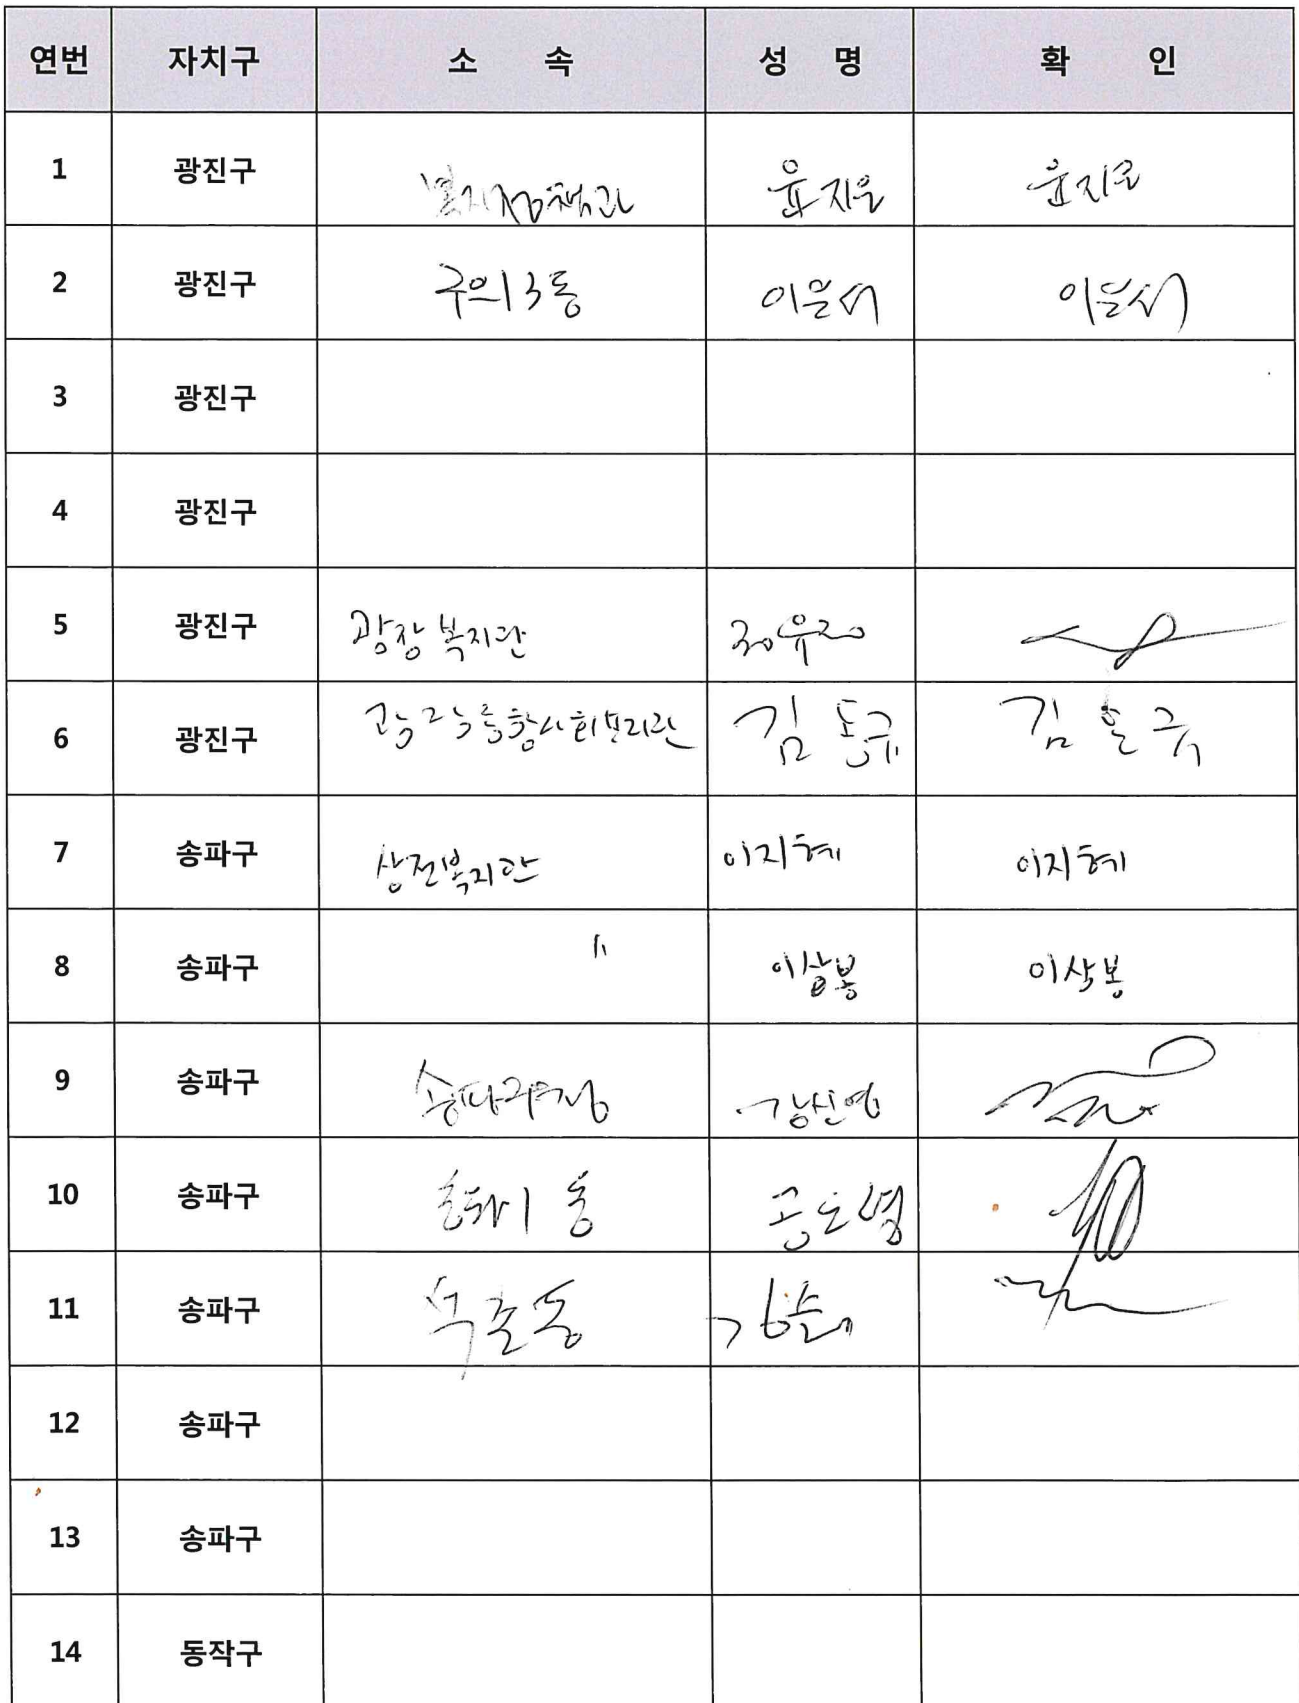 연번 자치구 소 속 성 명 확 인
1 광진구 복지정책과 윤지은 윤지은
2 광진구 구의3동 이은서 이은서
3 광진구
4 광진구
5 광진구 광장복지관 정유정
6 광진구 김 김
7 송파구 삼전복지관 이지혜 이지혜
8 송파구 〃 이상봉 이상봉
9 송파구 송파구청 강신영
10 송파구
11 송파구 석촌동
12 송파구
13 송파구
14 동작구